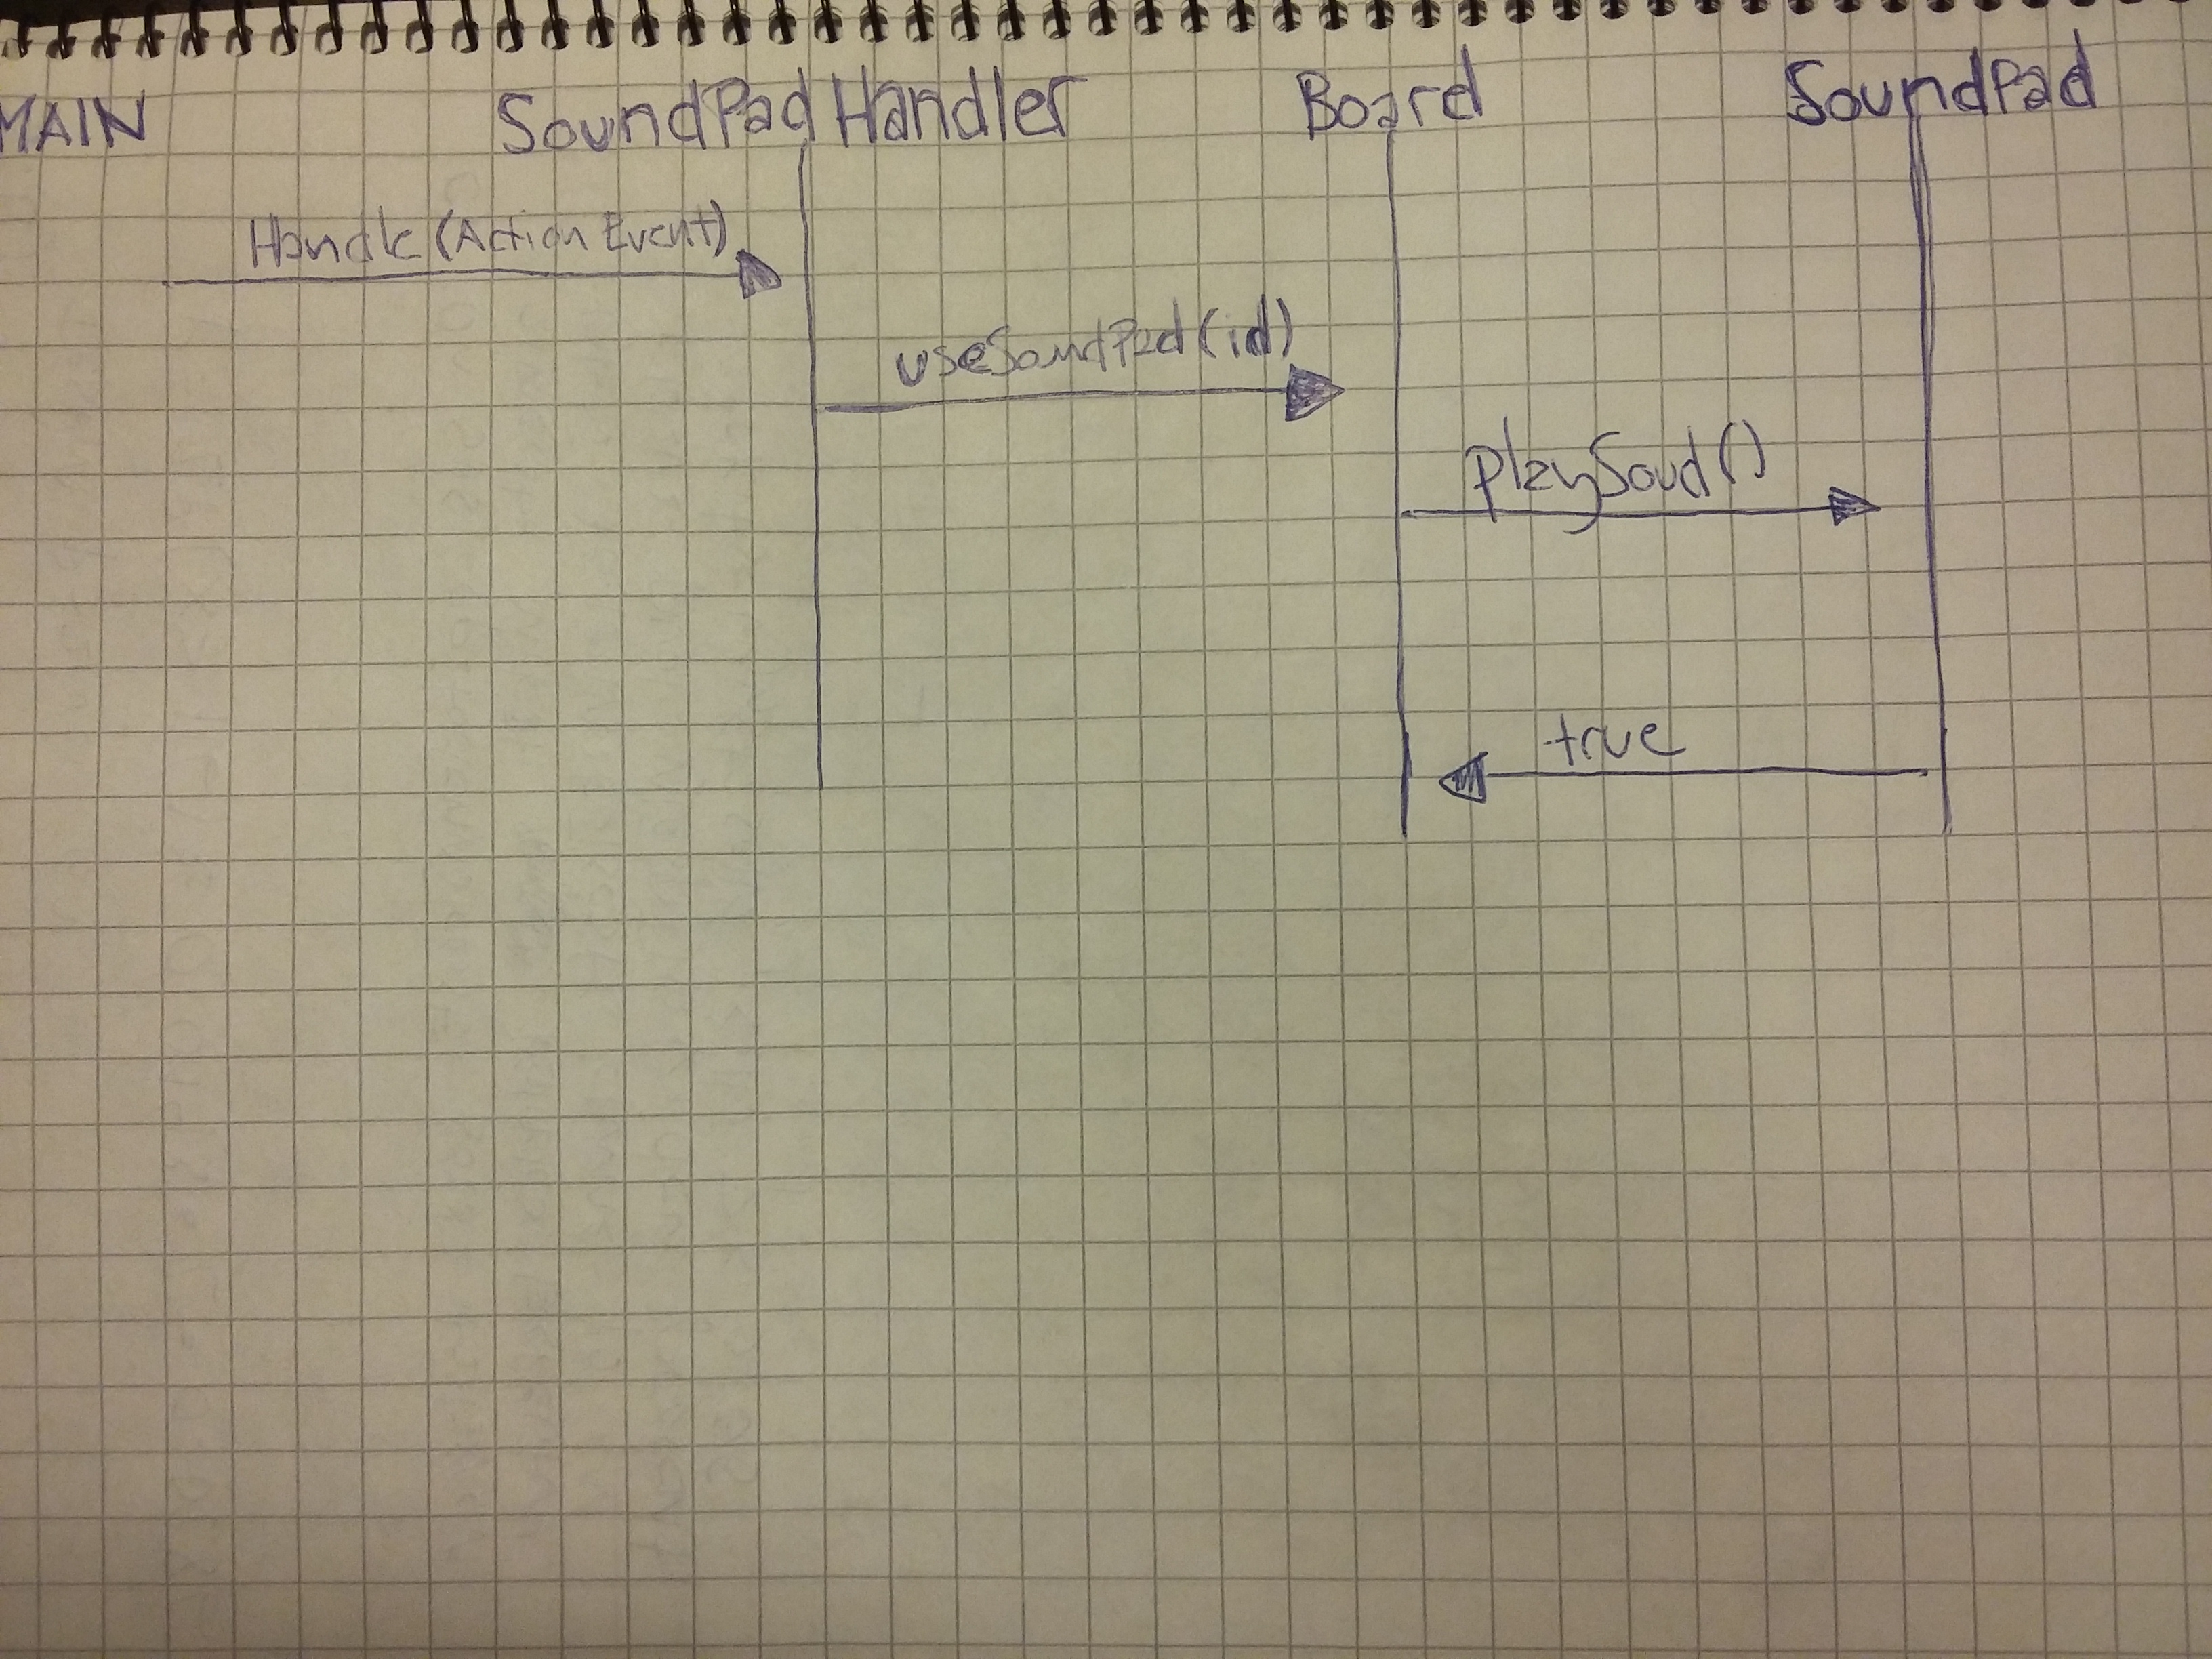 MAIN SoundPad Handler Board SoundPad
Handle (Action Event)
useSoundPad (id)
PlaySoud ()
true